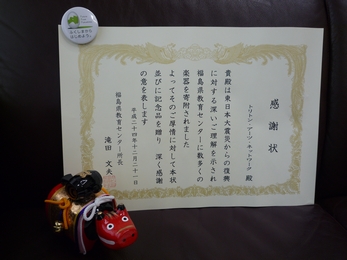 感謝状
トワトン・アーツ・ネットワーク 殿
貴殿は東日本大震災からの復興
に対する深いご理解を示され
福島県教育センターに数多くの
楽器を寄附されました
よってそのご厚情に対して本状
並びに記念品を贈り 深く感謝
の意を表します
平成二十四年十二月二十一日
福島県教育センター所長
滝田 文夫
ふくしまから
はじめよう。